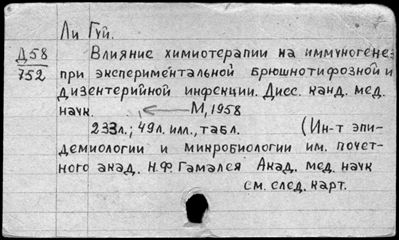 Ли Гуй.
Д58
752
Влияние химиотерапии на иммуногенез
при экспериментальной брюшнотифозной и
дизентерийной инфекции. Дисс. канд. мед.
наук. М, 1958
233л.; 49л. илл., табл. (Ин-т эпи-
демиологии и микробиологии им. почет-
ного акад. Н.Ф. Гамалея Акад. мед. наук
см. след. карт.